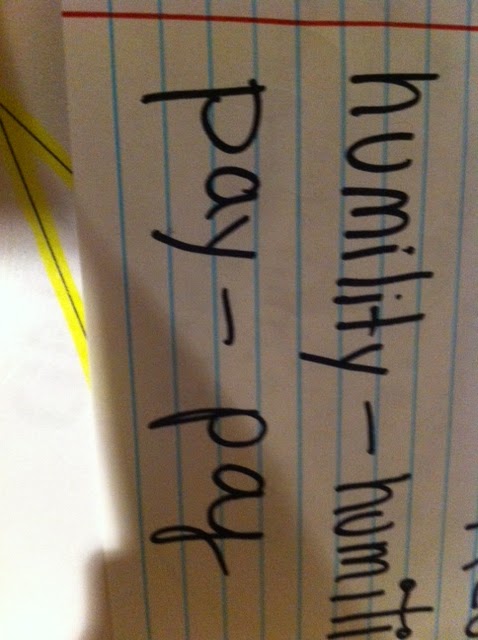 humility - humili
pay - pay